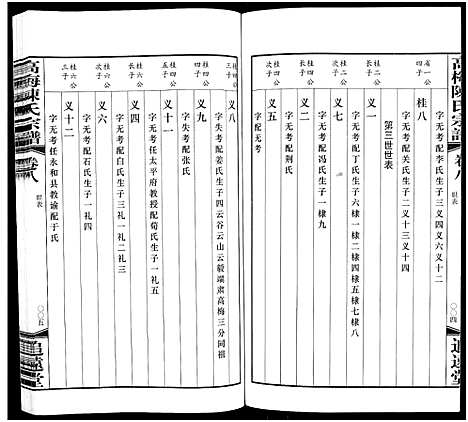 高梅陳氏宗譜
卷八
世表
〇〇四
追遠堂
省一公
四子
桂八
字无考配李氏生子四义六义十二
义十三义十四
第三世世表
桂二公
长子
义一
字无考配丁氏生子六棣一棣二棣四棣五棣七棣八
桂二公
次子
义二
字无考配冯氏生子一棣九
桂四公
长子
义三
字无考配荆氏
桂四公
次子
义五
字配无考
桂四公
三子
义八
字失考配姜氏生子四云谷云山云毅端肃高梅三分同祖
桂四公
四子
义九
字失考配张氏
义十一
字无考任太平府教授配荀氏生子一礼四
桂六公
长子
义四
字无考配白氏生子三礼一礼二礼三
桂六公
次子
义六
字无考配石氏生子一礼四
桂六公
三子
义十二
字无考任永和县教谕配于氏
高梅陳氏宗譜
卷八
世表
〇〇五
追遠堂